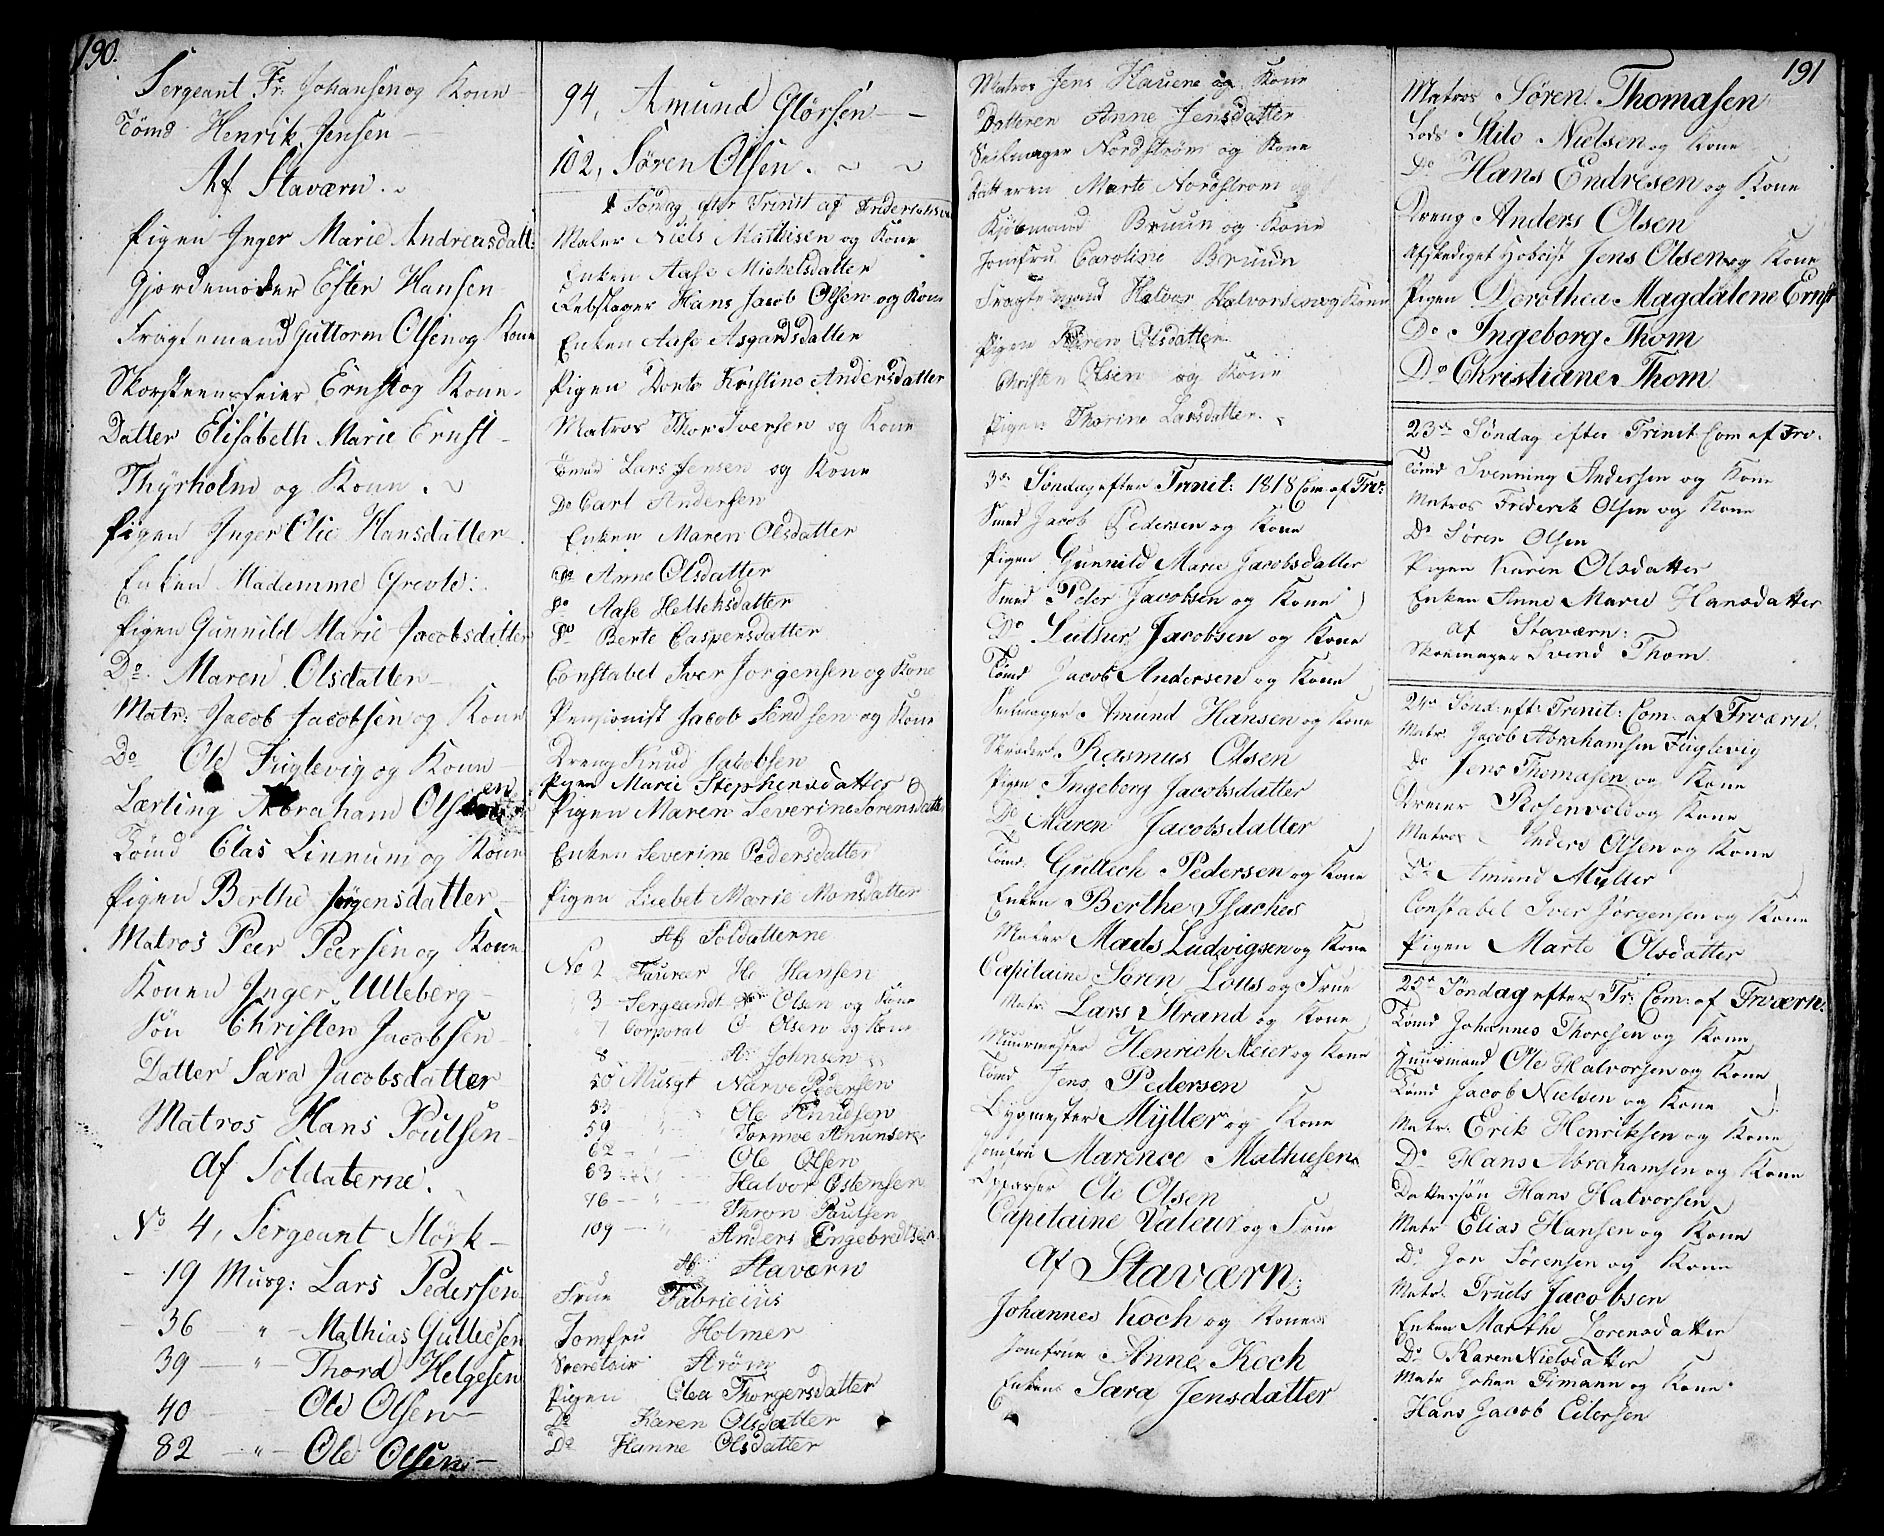 190.
Sergeant Fr: Johansen og Kone
Tömd Henrik Jensen
Af Staværn.
Pigen Inger Marie Andreasdatt:
Gjordemoder Ester Hansen
Fragtemand Guttorm Olsen og Kone
Skorsteensfeier Ernst og Kone
Datter Elisabeth Marie Ernst
Thyrholm og Kone
Pigen Inger Olie Hansdatter
Enken Madamme Grevle:
Pigen Gunnild Marie Jacobsdatter
Do. Maren Olsdatter
Matr: Jacob Jacobsen og Kone
Do Ole Fuglevig og Kone
Lærling Abraham Olsen
Tömd Clas Linnum og Kone
Pigen Berthe Jörgensdatter
Matros Peer Peersen og Kone
Konen Inger Ulleberg
Sön Christen Jacobsen
Datter Sara Jacobsdatter
Matros Hans Poulsen
Af Soldaterne.
No 4, Sergeant Mörk
19 Musq: Lars Pedersen
36 — " — Mathias Gulliesen
39 — " — Thord Helgesen
40 Ole Olsen
82 — " — Ole Olsen
94, Amund Glörsen
102, Sören Olsen.
1 Söndag efter Trinit af Frideriksværn
Maler Niels Mathisen og Kone
Enken Aase Michelsdatter
Rebslager Hans Jacob Olsen og Kone
Enken Aase Asgardsdatter
Pigen Dorte Kristine Andersdatter
Matros Thor Iversen og Kone
Tömd Lars Jensen og Kone
Do Carl Andersen
Enken Maren Olsdatter
Do Anne Olsdatter
Do Aase Hellehsdatter
Do Berte Caspersdatter
Constabel Iver Jorgensen og Kone
Pensionist Jacob Jendsen og Kone
Dreng Knud Jacobsen
Pigen Marie Stephensdatter
Pigen Maren Severine Sorensdatt
Enken Severine Pedersdatter
Pigen Lisebet Marie Monsdatter
Af Soldatterne
No 2 Faurer He Hansen
3 Sergeandt Olsen og Kone
7 Corporal O Olsen og Kone
8 A: Johnsen
20 Musqt Narve Pedersen
33 Ole Knudsen
59 Tormoe Amunsen
62 Ole Olsen
83 Halvor Ostensen
96 — " Thron Paulsen
109 — " Anders Engebredtsen
Af Staværn
Frue Fabricius
Jomfru Holmer
Secretair Ström
Pigen Olea Thorgersdatter
Do Karen Olsdatter
Do Hanne Olsdatter
Matros Jens Hauene og Kone
Datteren Anne Jensdatter
Seilmager Nordström og Kone
Datteren Marte Nordstrom og
Kjöbmand Bruun og Kone
Jomfru Caroline Bruun
Fragtemand Halvor Halvordsen og Kone
Pigen Karen Olsdatter
Christen Olsen og Kone
Pigen Thorine Larsdatter.
3de Söndag efter Trinit: 1818 Com. af Frv:
Smed Jacob Pedersen og Kone
Pigen Gunnild Marie Jacobsdatter
Smed Peder Jacobsen og Kone
Do Luthur Jacobsen og Kone
Tömd Jacob Andersen og Kone
Seilmager Amund Hansen og Kone
Skræder Rasmus Olsen
Pigen Ingeborg Jacobsdatter
Do Maren Jacobsdatter
Tömd. Gullech Pedersen og Kone
Enken Berthe Isachs
Maler Mads Ludvigsen og Kone
Capitaine Sören Lous og Frue
Matr. Lars Strand og Kone
Muurmester Henrich Meier og Kone
Tömd Jens Pedersen
Bygmester Mÿller og Kone
Jomfru Marence Mathiesen
Opparser Ole Olsen
Capitaine Valeur og Frue
Af Staværn.
Johannes Koch og Kone
Jomfrue Anne Koch
Enken Sara Jensdatter
191
Matros Sören Thomasen
Lods Stile Nielsen og Kone
Do Hans Endresen og Kone
Dreng Anders Olsen
Afskediget Hoboist Jens Olsen og Kone
Pigen Dorothea Magdalene Ernst
Do Ingeborg Thom
Do Christiane Thom
23de Söndag efter Trinit: Com af Frv.
Tömd Svenning Andersen og Kone
Matros Frederik Olsen og Kone
Do Sören Olsen
Pigen Karen Olsdatter
Enken Anne Marie Hansdatter
af Staværn:
Skoemager Svend Thom.
24de Sönd: eft: Trinit: Com: af Frværn.
Matr. Jacob Abrahamsen Fuglevig
do Jens Thomasen og Kone
Dreier Rosenvold og Kone
Matros Anders Olsen og Kone
Do Amund Müller
Constabel Iver Jörgensen og Kone
Pigen Marte Olsdatter
25de Söndag efter Tr: Com: af Frværn.
Tömd Johannes Thoresen og Kone
Huusmand Ole Halvorsen og Kone
Tömd Jacob Nielsen og Kone
Matr. Erik Henriksen og Kone
Do Hans Abrahamsen og Kone
Dattersön Hans Halvorsen
Matr Elias Hansen og Kone
Do Jor Sörensen og Kone
Matr. Truels Jacobsen
Enken Marthe Lorensdatter
Do Karen Nielsdatter
Matr Johan Timann og Kone
Hans Jacob Eilersen